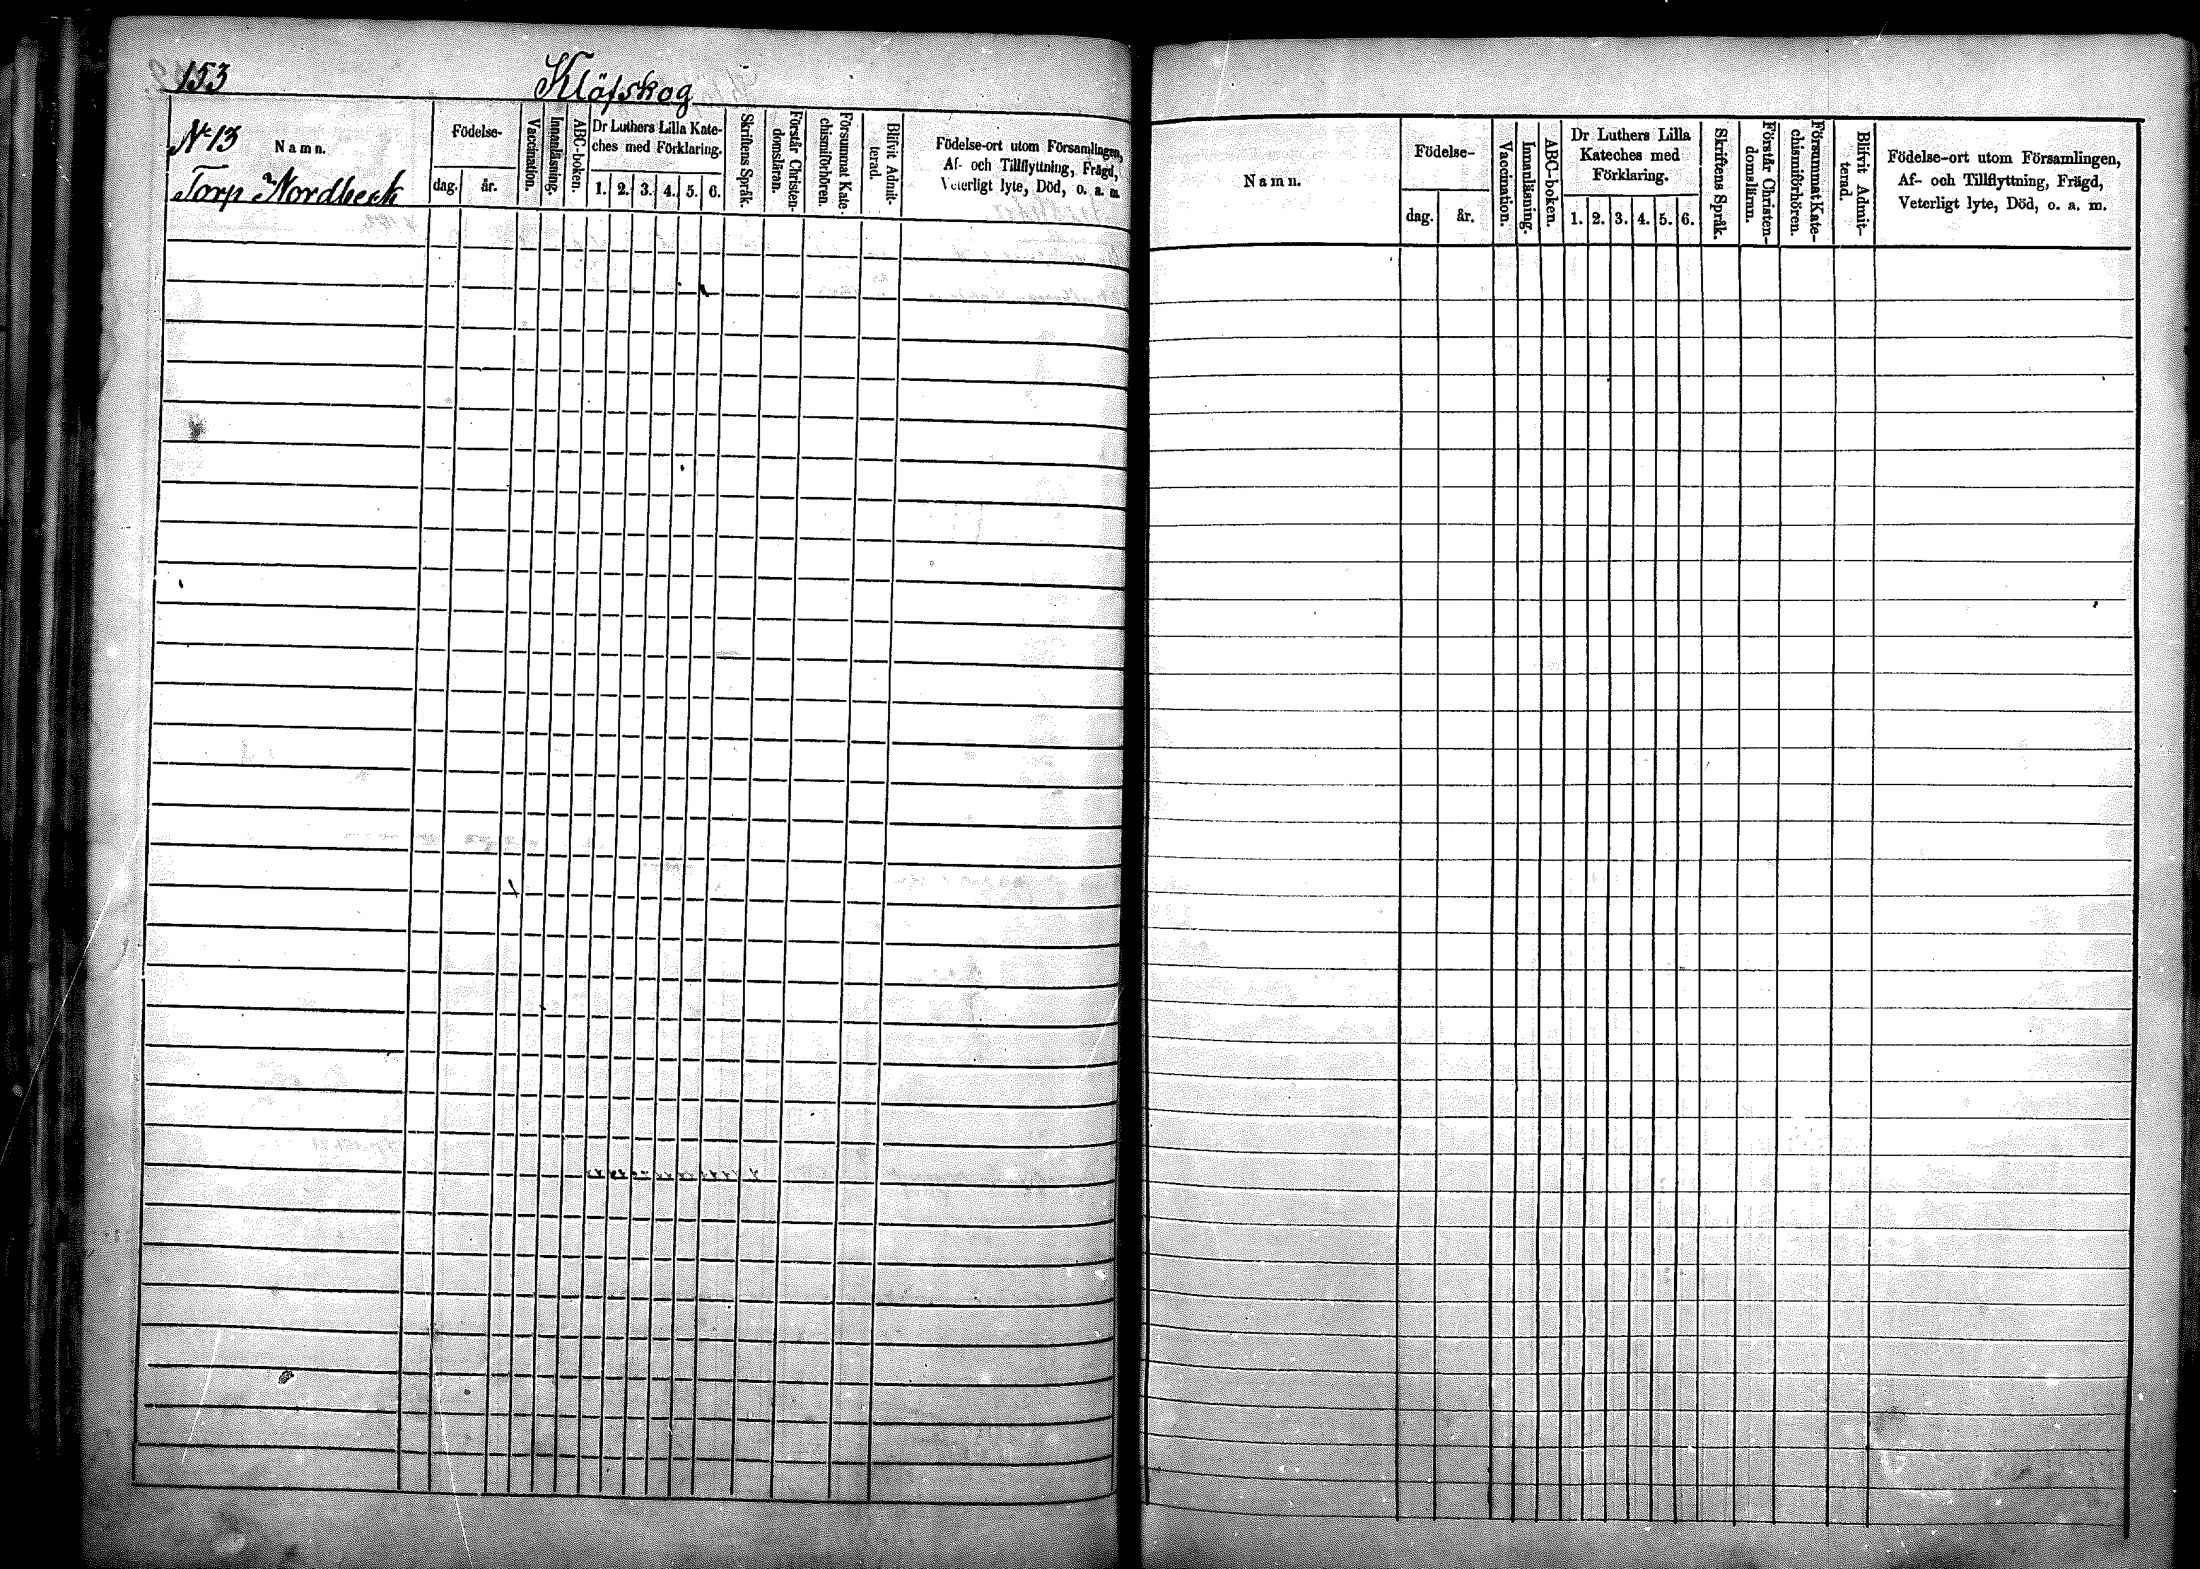 153
Klöfskog
No 13
Namn.
Torp Nordbeck
Födelse-
dag. år.
Vaccination.
Innanläsning.
ABC-boken.
Dr Luthers Lilla Kate-
ches med Förklaring.
1. 2. 3. 4. 5. 6.
Skriftens Språk.
Förstår Christen-
domsläran.
Försummat Kate-
chismiförhören.
Blifvit Admit-
terad.
Födelse-ort utom Församlingen,
Af- och Tillflyttning, Frägd,
Veterligt lyte, Död, o. a. m.
Namn.
Födelse-
dag. år.
Vaccination.
Innanläsning.
ABC-boken.
Dr Luthers Lilla
Kateches med
Förklaring.
1. 2. 3. 4. 5. 6.
Skriftens Språk.
Förstår Christen-
domsläran.
Försummat Kate-
chismiförhören.
Blifvit Admit-
terad.
Födelse-ort utom Församlingen,
Af- och Tillflyttning, Frägd,
Veterligt lyte, Död, o. a. m.